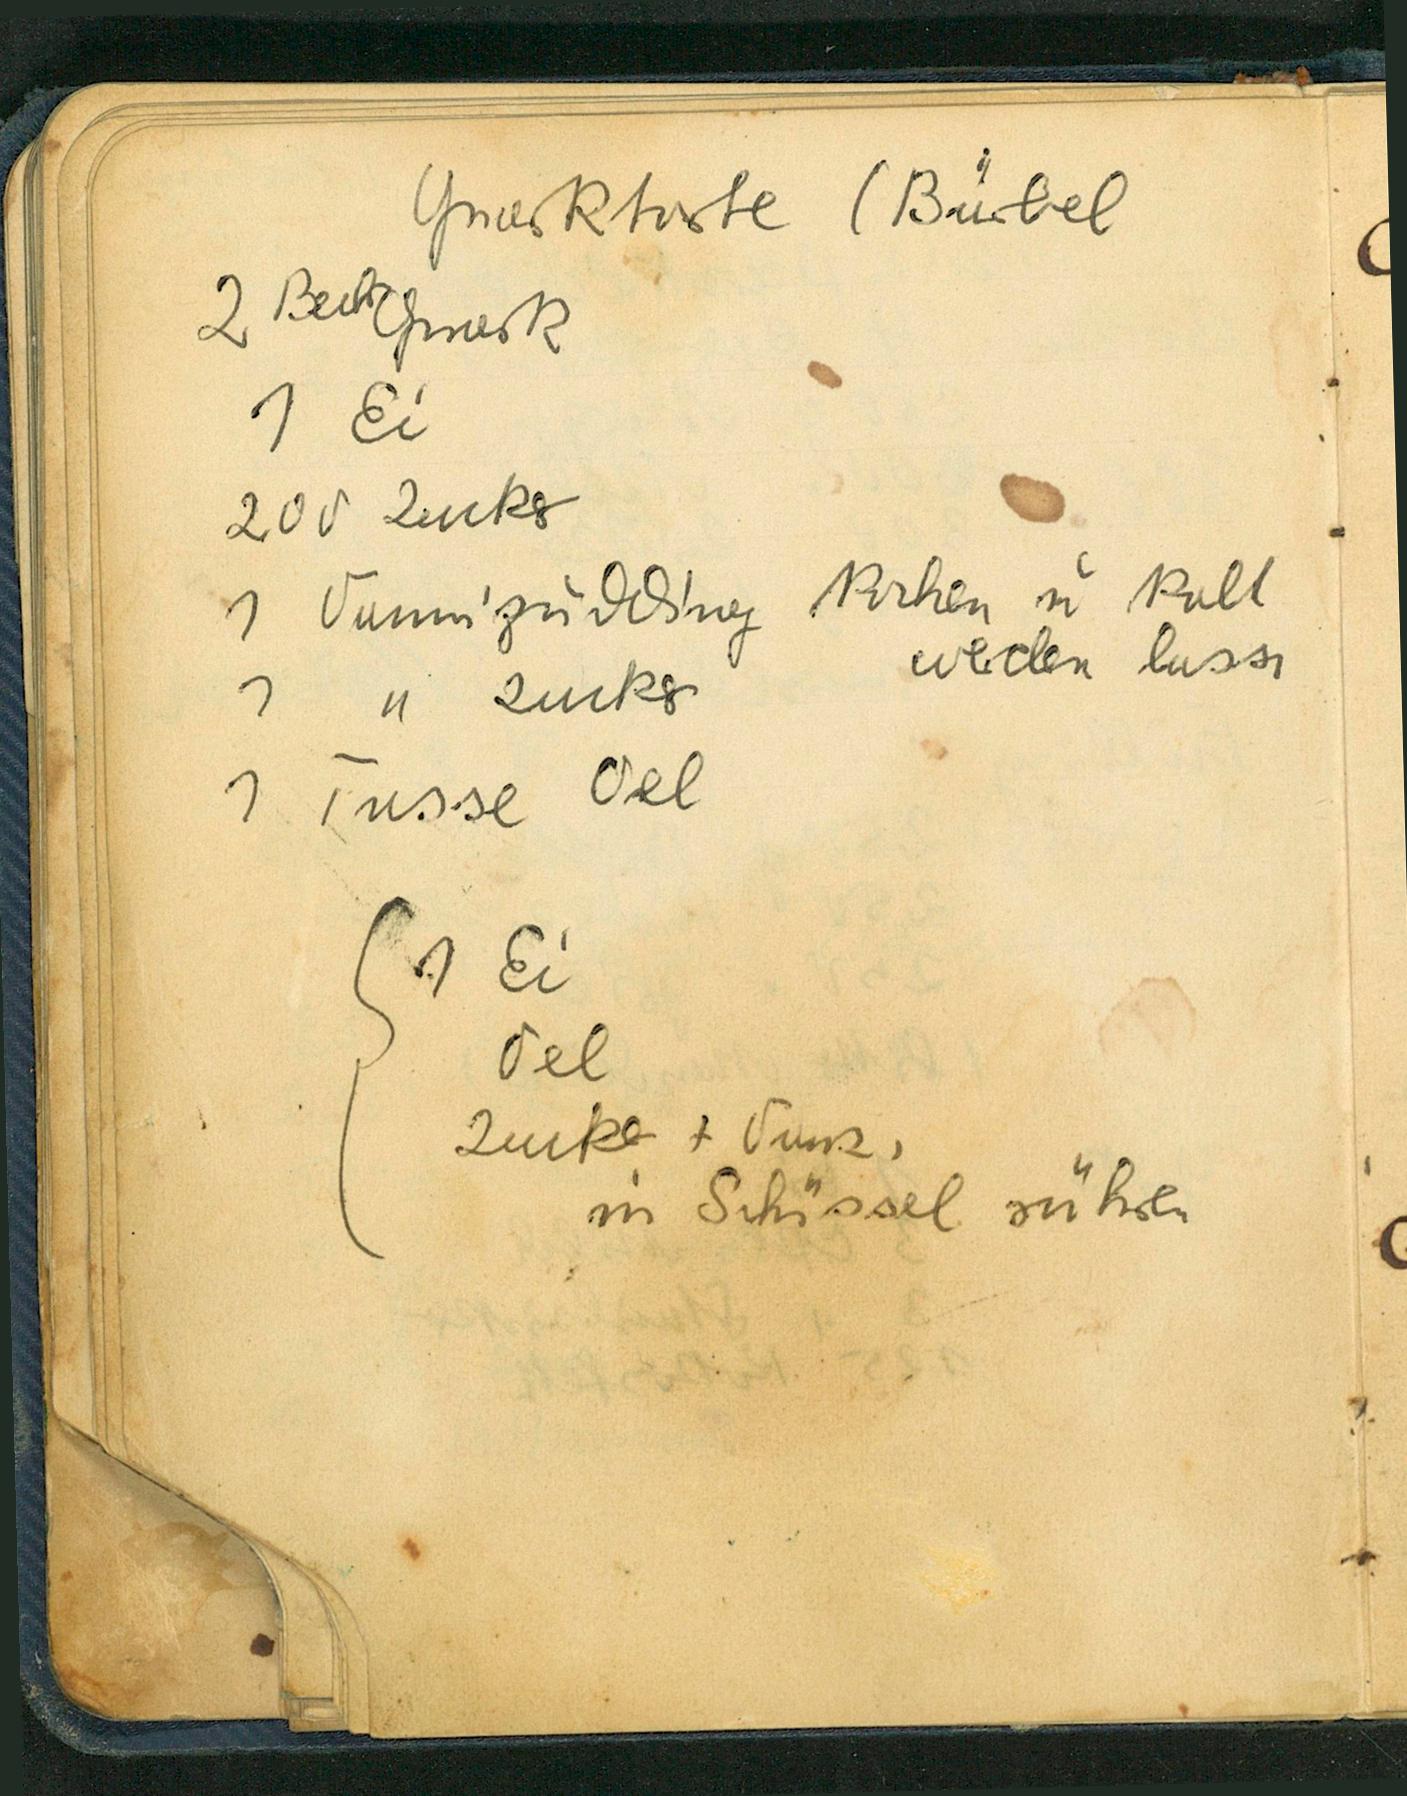 Quarktorte (Bärbel
2 Bech Quark
1 Ei
200 Zucker
1 Vannipudding kochen u kalt
werden lassn
1 " Zucker
1 Tasse Oel
1 Ei
Oel
Zucker + Vanz,
in Schüssel rühren